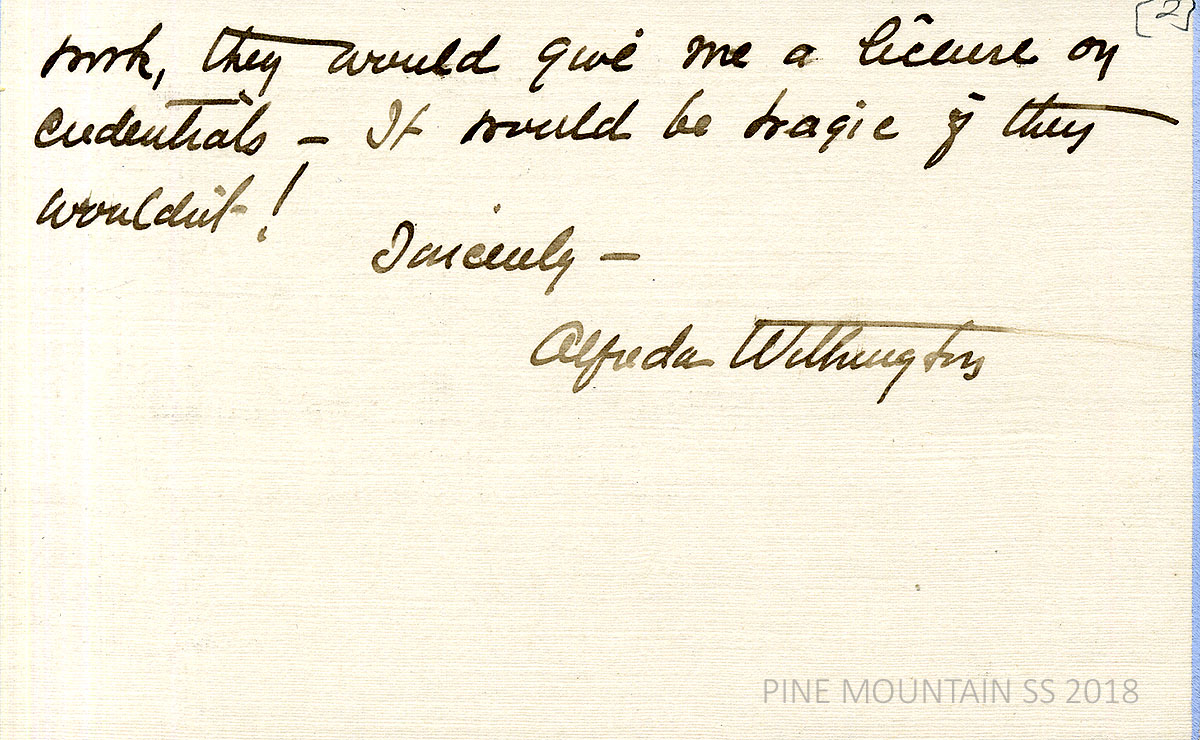 [2]
work, they would give me a license on
credentials – It would be tragic if they
wouldn't!
Sincerely –
Alfreda Withington
PINE MOUNTAIN SS 2018